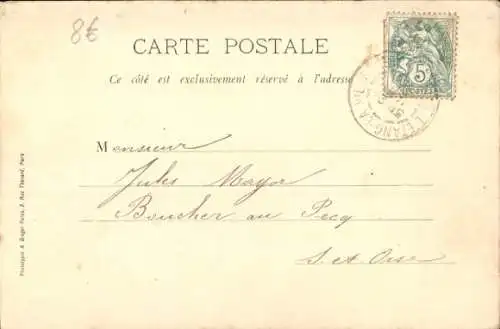 8€
CARTE POSTALE
Ce côté est exclusivement réservé à l'adresse
5
Monsieur
Jules Mayor
Boucher au Pecq
S. et Oise
Phototypie A. Breger Frères, 9, Rue Thénard, Paris